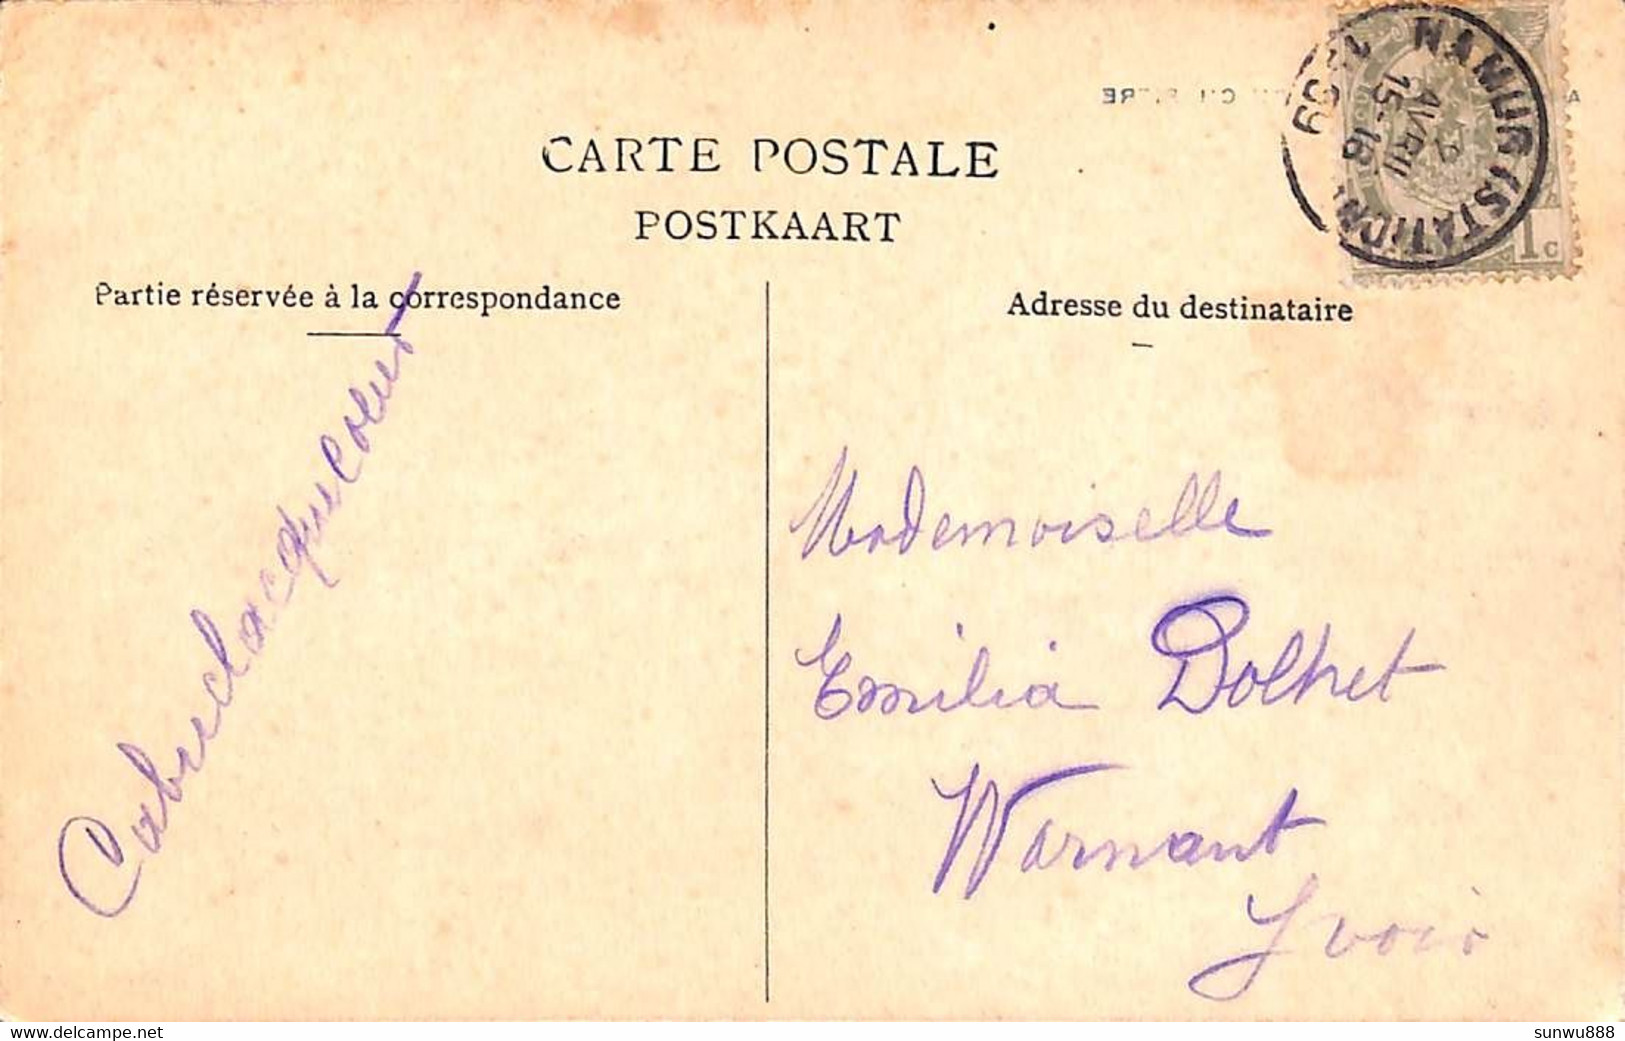 CARTE POSTALE
POSTKAART
NAMUR (STATION)
AVRIL
15-16
09
1c
Partie réservée à la correspondance
Adresse du destinataire
Mademoiselle
Emilia Dolhet
Warnant
Yvoir
sunwu888
www.delcampe.net